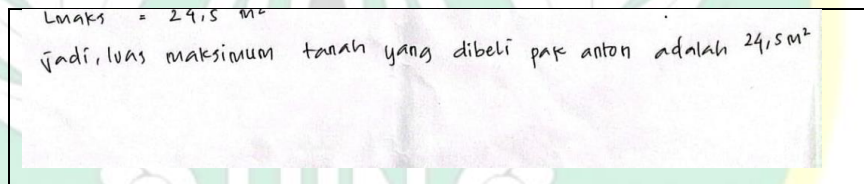 Lmaks = 24,5 m²
Jadi, luas maksimum tanah yang dibeli pak anton adalah 24,5 m²